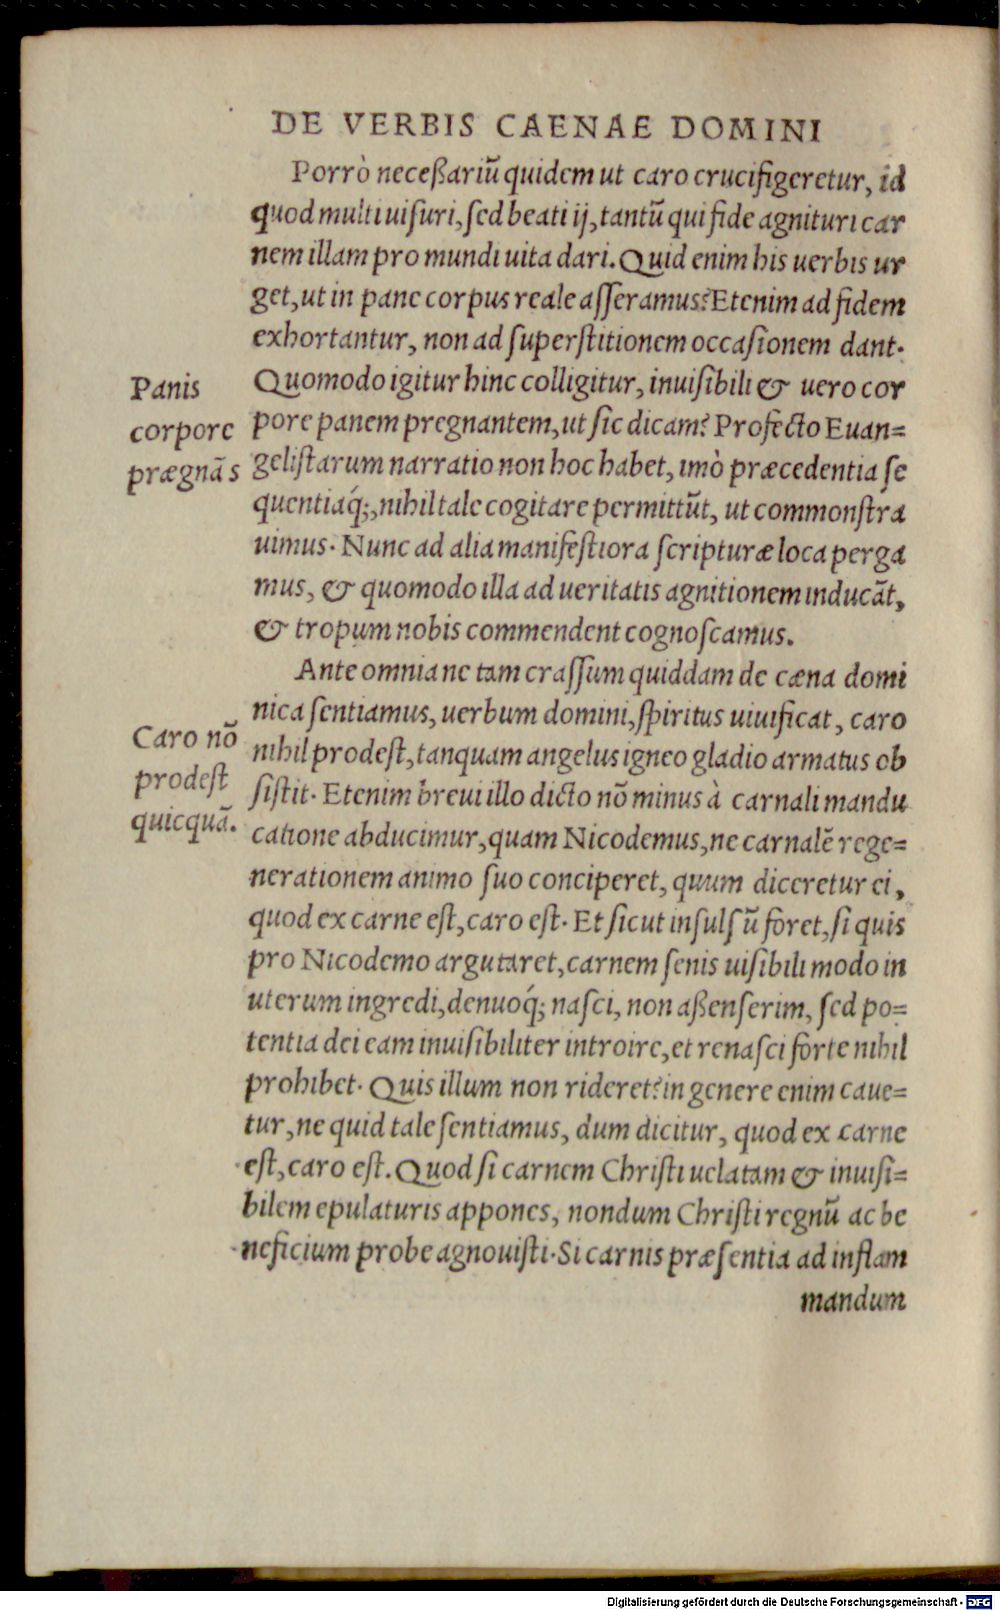 DE VERBIS CAENAE DOMINI
Porrò neceßariũ quidem ut caro crucifigeretur, id
quod multi uisuri, sed beati ij, tantũ qui fide agnituri car
nem illam pro mundi uita dari. Quid enim his uerbis ur
get, ut in pane corpus reale asseramus? Etenim ad fidem
exhortantur, non ad superstitionem occasionem dant.
Quomodo igitur hinc colligitur, inuisibili & uero cor
pore panem pregnantem, ut sic dicam? Profecto Euan=
gelistarum narratio non hoc habet, imò præcedentia se
quentiaq́;, nihil tale cogitare permittũt, ut commonstra
uimus. Nunc ad alia manifestiora scripturæ loca perga
mus, & quomodo illa ad ueritatis agnitionem inducãt,
& tropum nobis commendent cognoscamus.
Panis
corpore
prægnãs
Ante omnia ne tam crassum quiddam de cæna domi
nica sentiamus, uerbum domini, spiritus uiuificat, caro
nihil prodest, tanquam angelus igneo gladio armatus ob
sistit. Etenim breui illo dicto nõ minus à carnali mandu
catione abducimur, quam Nicodemus, ne carnalẽ rege=
nerationem animo suo conciperet, quum diceretur ei,
quod ex carne est, caro est. Et sicut insulsũ foret, si quis
pro Nicodemo argutaret, carnem senis uisibili modo in
uterum ingredi, denuoq́; nasci, non aßenserim, sed po=
tentia dei eam inuisibiliter introire, et renasci forte nihil
prohibet. Quis illum non rideret? in genere enim caue=
tur, ne quid tale sentiamus, dum dicitur, quod ex carne
est, caro est. Quod si carnem Christi uelatam & inuisi=
bilem epulaturis appones, nondum Christi regnũ ac be
neficium probe agnouisti. Si carnis præsentia ad inflam
mandum
Caro nõ
prodest
quicquã.
Digitalisierung gefördert durch die Deutsche Forschungsgemeinschaft - DFG